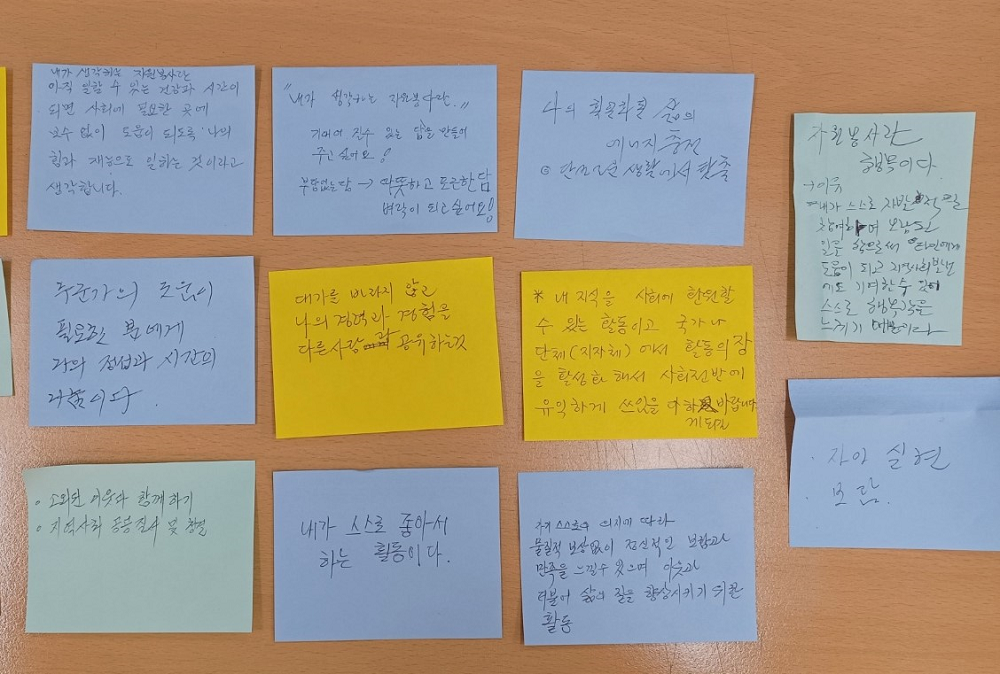 내가 생각하는 자원봉사란
아직 일할 수 있는 건강과 시간이
되면 사회에 필요한 곳에
보수 없이 도움이 되도록 나의
힘과 재능으로 일하는 것이라고
생각합니다.
"내가 생각하는 자원봉사란"
기여여 진수 있는 담을 만들어
주고 싶어요!
부담없는담 → 따뜻하고 포근한담
벼락이 되고싶어요!
나의 획일화된 삶의
에너지 충전
◎ 단조로운 생활에서 탈출
자원봉사란
행복이다.
→ 이유
내가 스스로 자발적
참여하여 보람된
일을 함으로써 타인에게
도움이 되고 지역사회
에도 기여할 수 있어
스스로 행복감을
느끼기 때문이다
누군가의 도움이
필요한 분에게
나의 정성과 시간의
나눔이다.
대가를 바라지 않고
나의 경력과 경험을
다른사람과 공유하는것
* 내 지식을 사회에 환원할
수 있는 활동이고 국가나
단체(지자체)에서 활동의 장
을 활성화 해서 사회전반에
유익하게 쓰임을 바랍니다
게 되길
· 자아 실현
· 보람
○ 소외된 이웃과 함께하기
○ 지역사회 공공질서 및 청결
내가 스스로 좋아서
하는 활동이다.
자기 스스로의 의지에 따라
물질적 보상없이 정신적인 보람과
만족을 느낄수 있으며 이웃과
더불어 삶의 질을 향상시키기 위한
활동